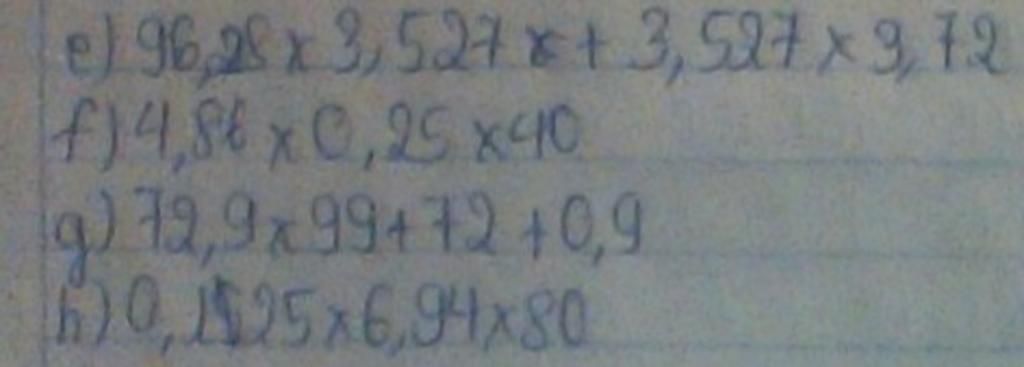 e) 96,28 x 3,527 x + 3,527 x 3,72
f) 4,86 x 0,25 x 40
g) 72,9 x 99 + 72 + 0,9
h) 0,125 x 6,94 x 80